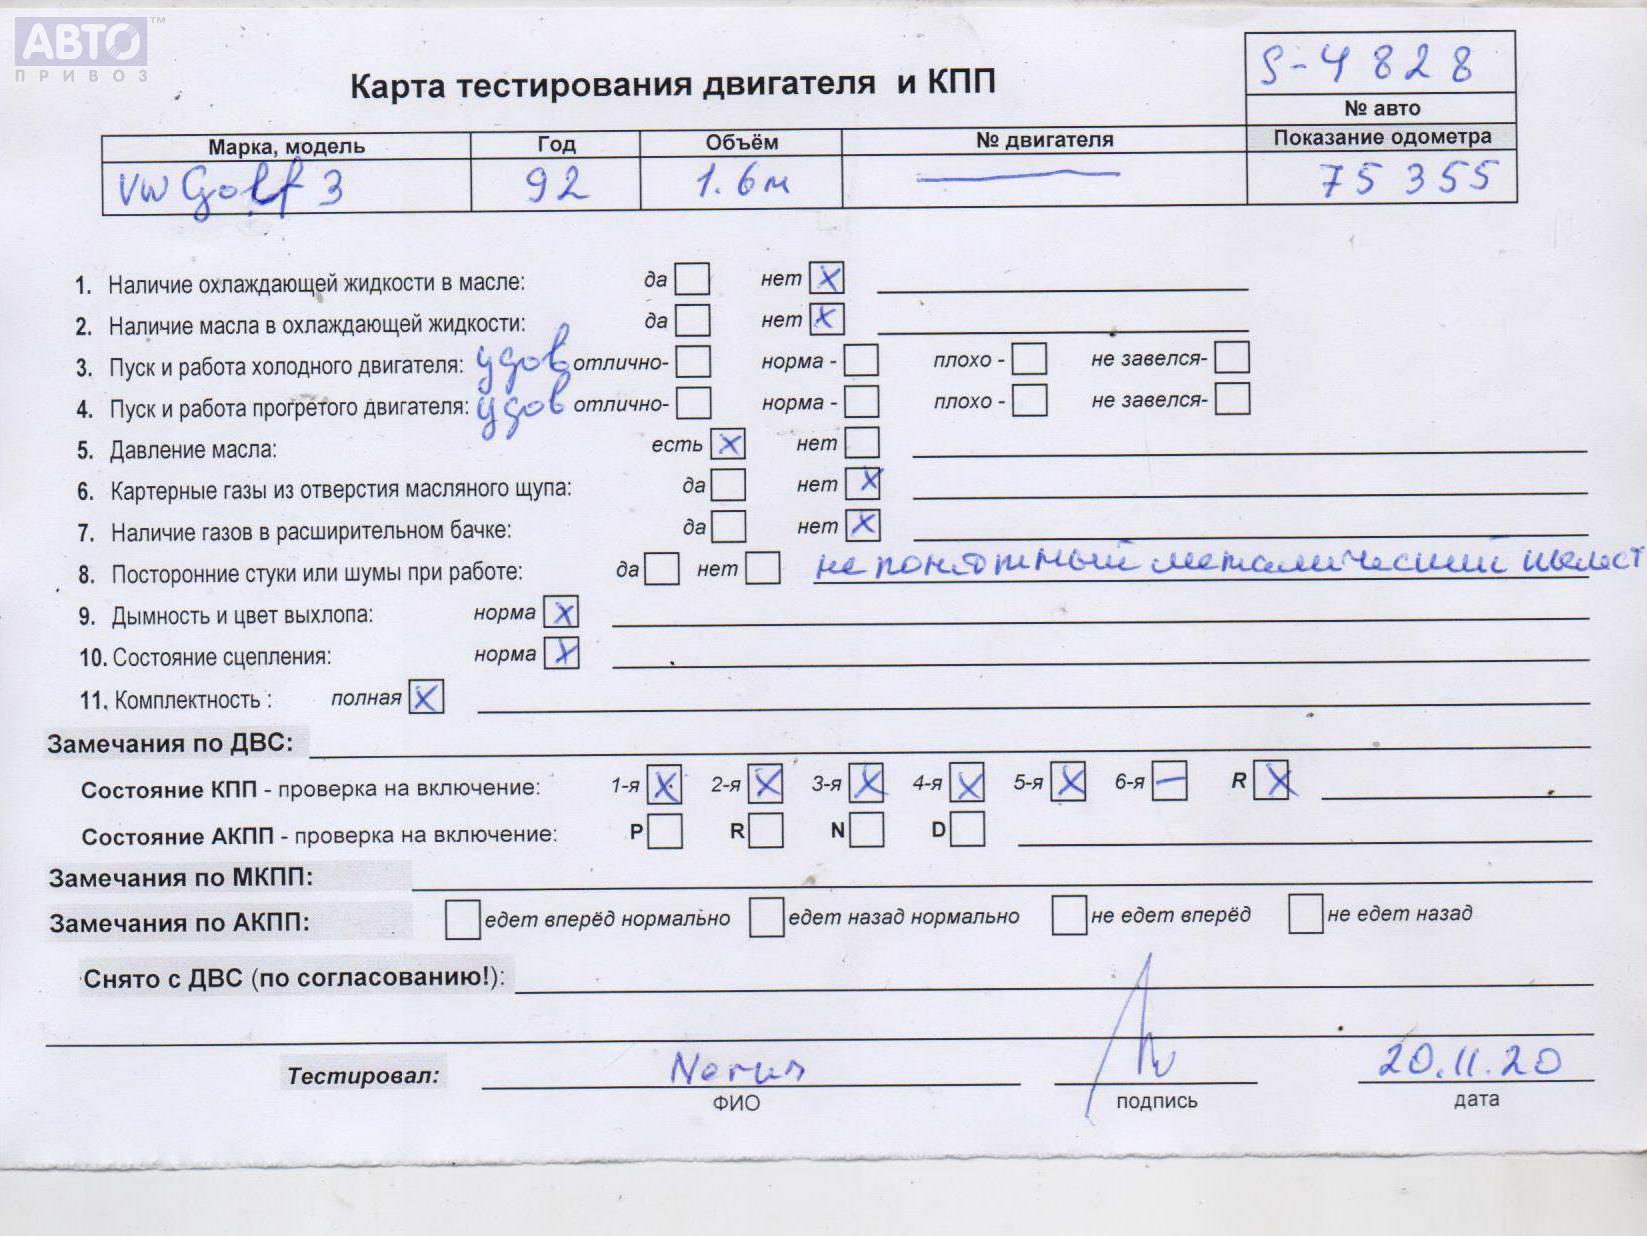 АВТО ™
ПРИВОЗ
S-4828
Карта тестирования двигателя и КПП
№ авто
Марка, модель Год Объём № двигателя Показание одометра
VW Golf 3 92 1.6м 75 355
1. Наличие охлаждающей жидкости в масле: да нет X
2. Наличие масла в охлаждающей жидкости: да нет X
3. Пуск и работа холодного двигателя: удов отлично- норма - плохо - не завелся-
4. Пуск и работа прогретого двигателя: удов отлично- норма - плохо - не завелся-
5. Давление масла: есть X нет
6. Картерные газы из отверстия масляного щупа: да нет X
7. Наличие газов в расширительном бачке: да нет X
8. Посторонние стуки или шумы при работе: да нет не понятный металический шелест
9. Дымность и цвет выхлопа: норма X
10. Состояние сцепления: норма X
11. Комплектность : полная X
Замечания по ДВС:
Состояние КПП - проверка на включение: 1-я X 2-я X 3-я X 4-я X 5-я X 6-я – R X
Состояние АКПП - проверка на включение: P R N D
Замечания по МКПП:
Замечания по АКПП: едет вперёд нормально едет назад нормально не едет вперёд не едет назад
Снято с ДВС (по согласованию!):
Тестировал: 20.11.20
ФИО подпись дата